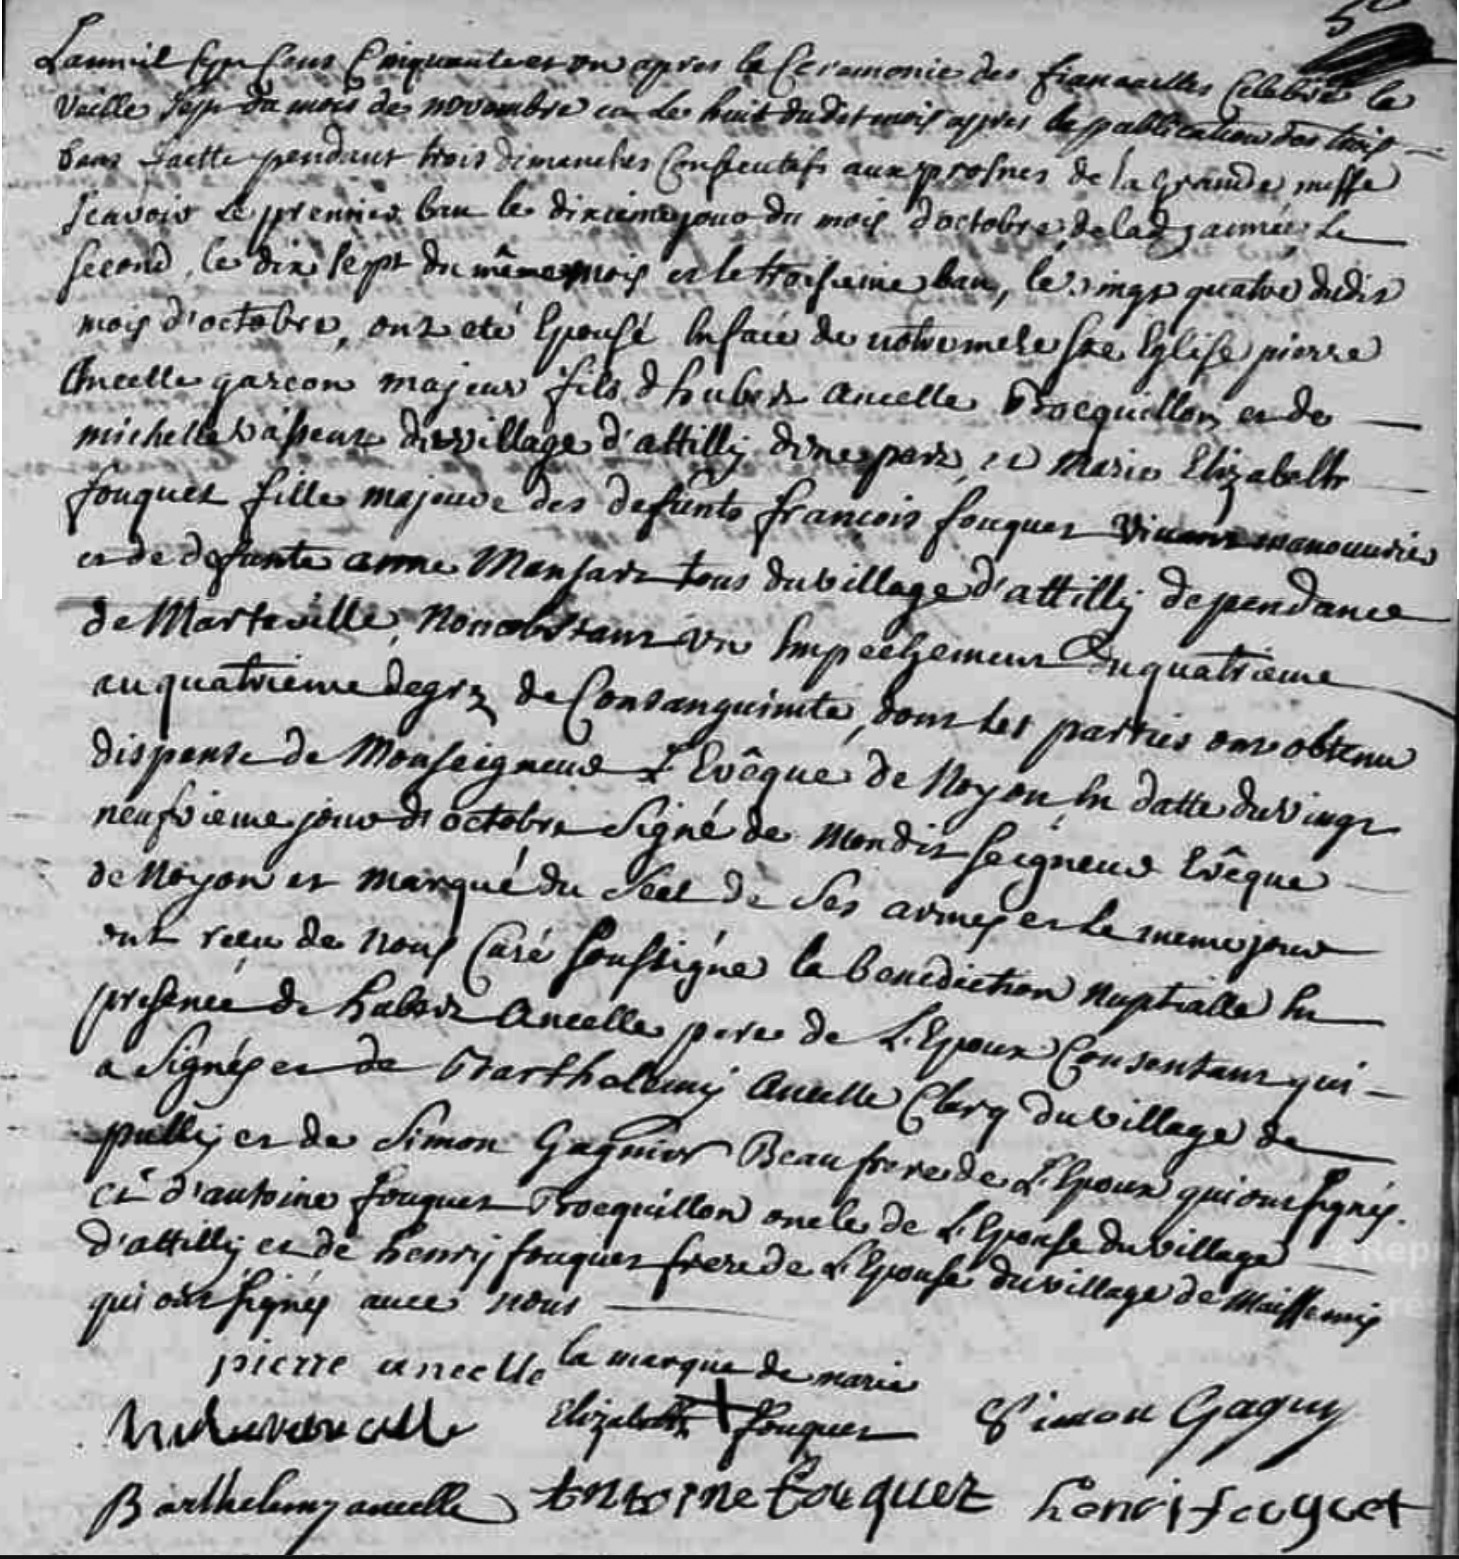 5
L'an mil sept cens Cinquante et un apres la Ceremonie des fiancailles Celebré la
veille sept du mois de novembre et le huit dudit mois apres la publication des trois
bans faitte pendant trois dimanches Consecutifs aux prosnes de la grande messe
scavoir le premier ban le dixieme jour du mois d'octobre de lad. année, le
second, le dix sept du même mois et le troisieme ban, le vingt quatre dudit
mois d'octobre, ont eté Epousé En face de notre mere Ste Eglise pierre
Ancelle garcon majeur fils d'hubert Ancelle Trocquillon et de
michelle vasseur du village d'attilly d'une part, et Marie Elizabeth
fouquet fille majeure des defunts francois fouquet vivant manouvrier
et de defunte anne Mansart tous du village d'attilly dependance
de Marteville, Nonobstant un Empechement du quatrieme
au quatrieme degrez de Consanguinité, dont les parties ont obtenu
dispense de Monseigneur L'Evêque de Noyon En datte du vingt
neufvieme jour d'octobre Signé de mondit seigneur Evêque
de Noyon et marqué du Scel de Ses armes et le meme jour
ont recu de nous Curé soussigné la benediction nuptialle En
presence de hubert Ancelle pere de L'Epoux Consentant qui
a Signés et de Barthelemy Ancelle Clerq du village de
pully et de Simon Gagnier Beaufrere de L'Epoux qui ont signés.
et d'antoine fouquet Trocquillon oncle de L'Epouse du village
d'attilly et de henry fouquet frere de L'Epouse du village de Maissemy
qui ont signés avec nous
pierre ancelle la marque de marie
Elizabeth fouquet Simon Gagny
Barthelemy ancelle Antoine fouquet henri fouquet